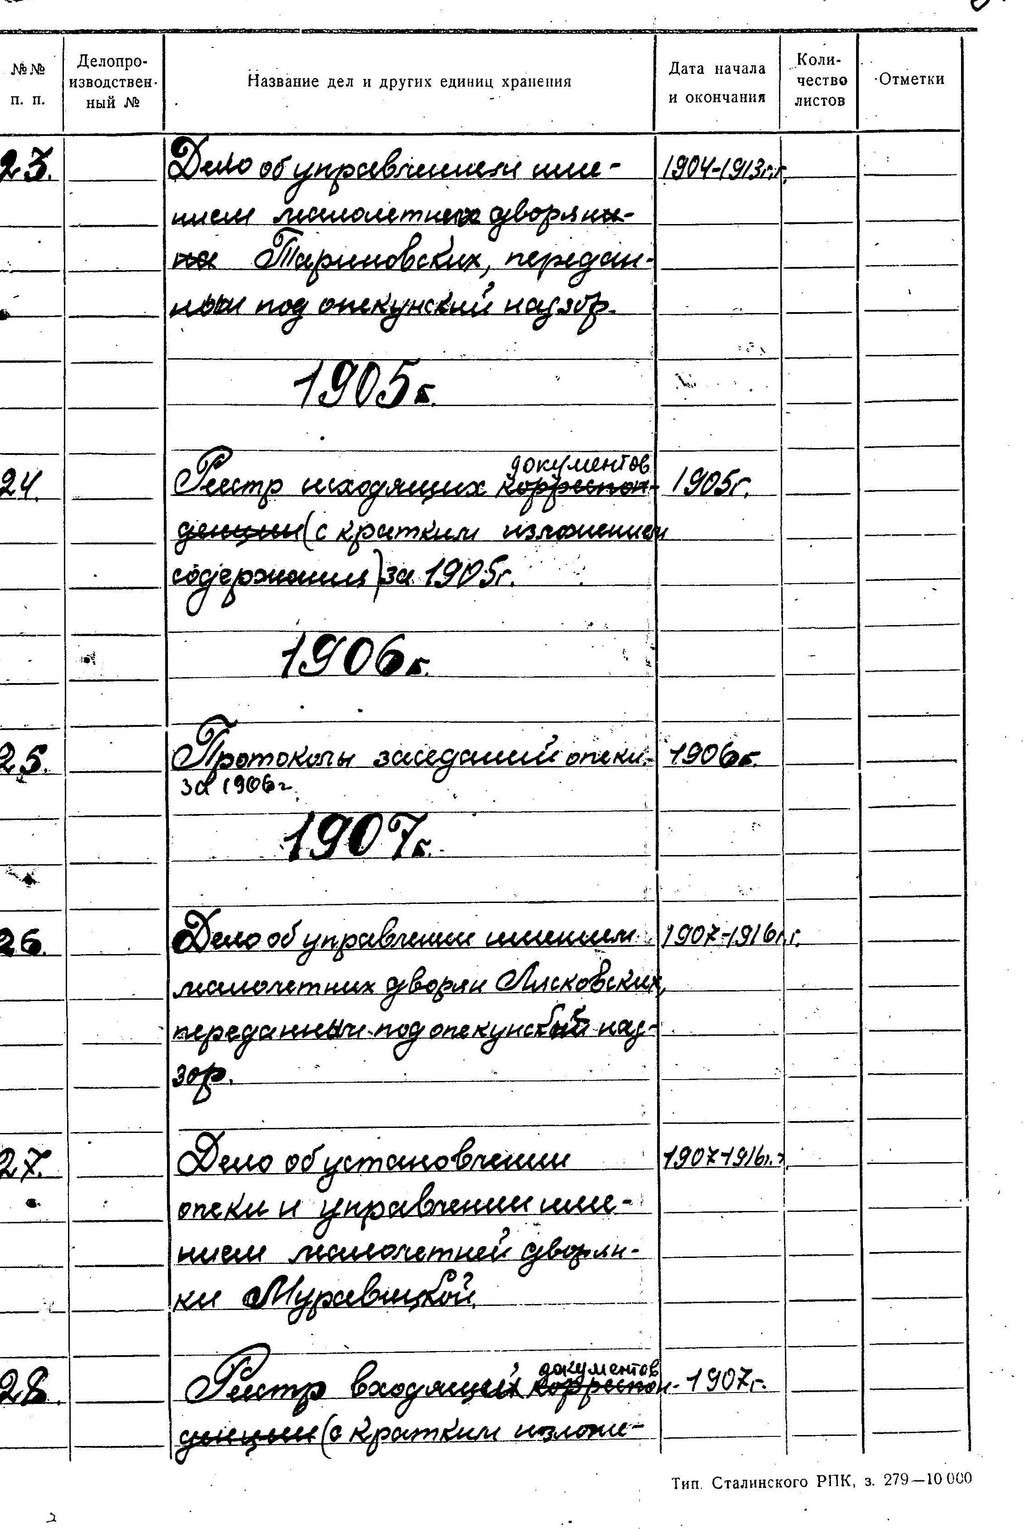 №№ п. п.
Делопроизводственный №
Название дел и других единиц хранения
Дата начала и окончания
Количество листов
Отметки
23. Дело об управлением име- 1904-1913г.г.
нием малолетних дворян
Тариновских, передан-
ным под опекунский надзор.
1905г.
документов
24. Реестр исходящих корреспон- 1905г.
денции (с кратким изложением
содержания) за 1905г.
1906г.
25. Протоколы заседаний опеки 1906г.
за 1906г.
1907г.
26. Дело об управлении имением 1907-1916г.г.
малолетних дворян Лисковских,
переданным под опекунский над-
зор.
27. Дело об установлении 1907-1916г.г.
опеки и управлении име-
нием малолетней дворян-
ки Муравицкой.
документов
28. Реестр входящих корреспон- 1907г.
денции (с кратким изложе-
Тип. Сталинского РПК, з. 279—10 000